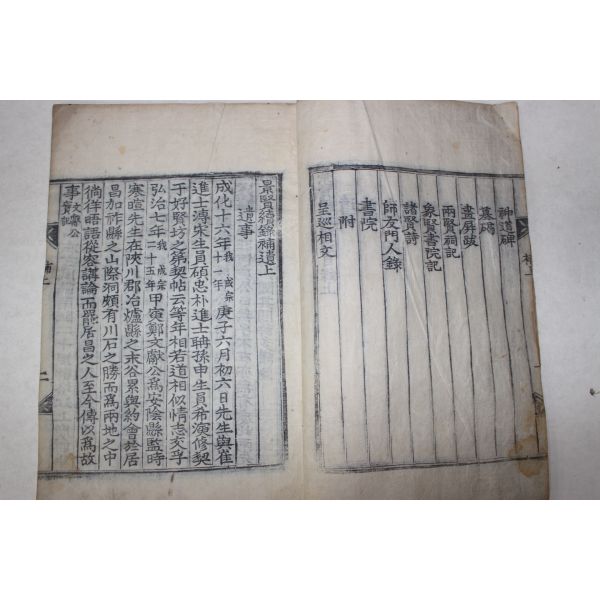 神道碑
墓碣
畫屛跋
兩賢祠記
象賢書院記
諸賢詩
師友門人錄
書院
附
呈巡相文
補上
景賢續錄補遺上
遺事
成化十六年我成宗十一年庚子六月初六日先生與崔
進士溥宋生員碩忠朴進士聃孫申生員希演修契
于好賢坊之第契帖云等年相若道相似情志交孚
弘治七年我成宗二十五年甲寅鄭文獻公爲安陰縣監時
寒暄先生在陜川郡冶爐縣之末谷累與約會於居
昌加祚縣之山際洞頗有川石之勝而爲兩地之中
徜徉晤語從容講論而罷居昌之人至今傳以爲故
事文獻公實記
補上
二